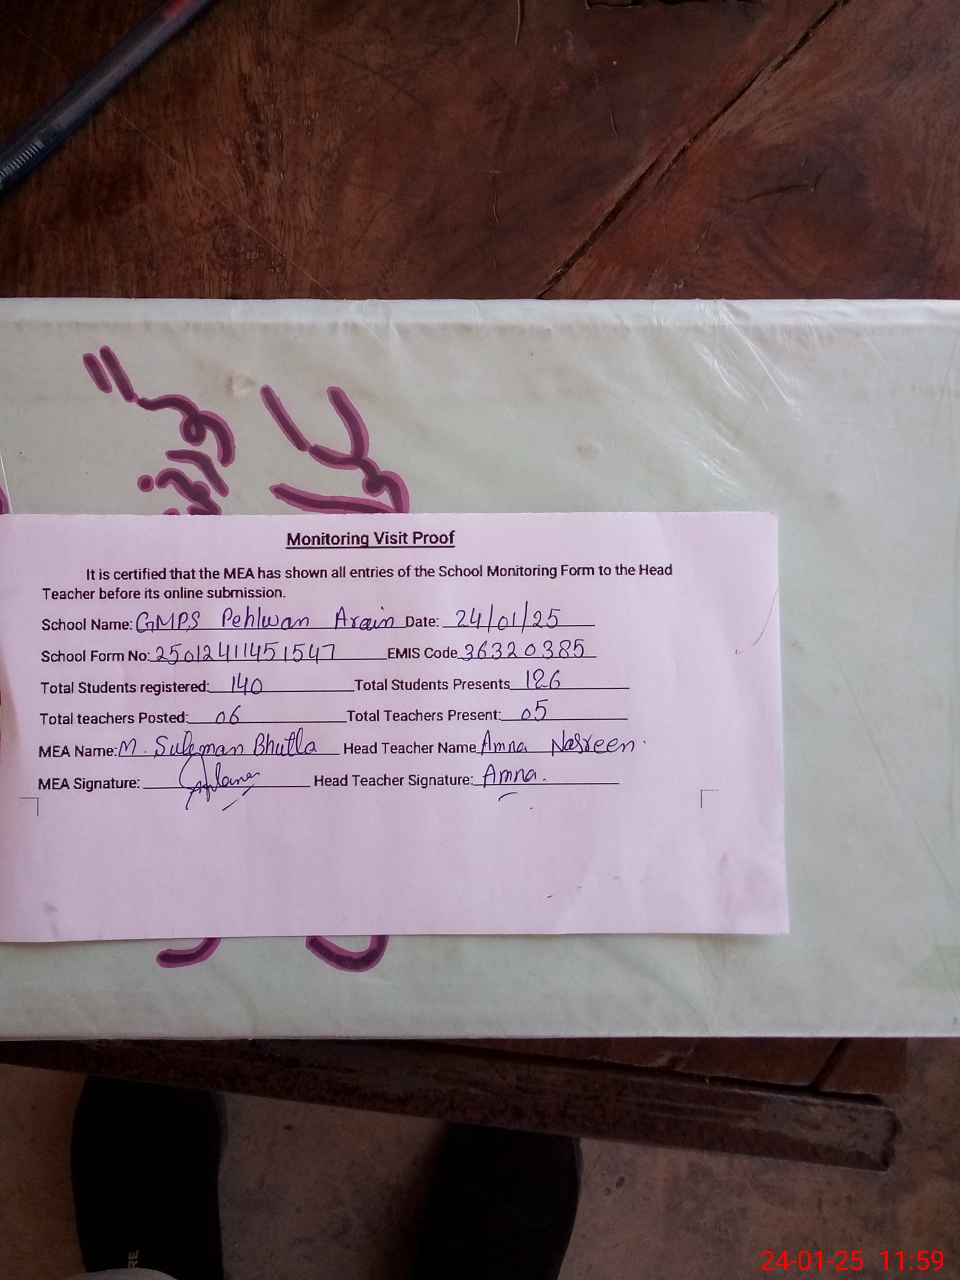 Monitoring Visit Proof
It is certified that the MEA has shown all entries of the School Monitoring Form to the Head
Teacher before its online submission.
School Name: GMPS Pehlwan Arain Date: 24/01/25
School Form No: 25012411451547 EMIS Code 36320385
Total Students registered: 140 Total Students Presents 126
Total teachers Posted: 06 Total Teachers Present: 05
MEA Name: M. Suleman Bhutta Head Teacher Name Amna Nasreen.
MEA Signature: Head Teacher Signature: Amna.
24-01-25 11:59